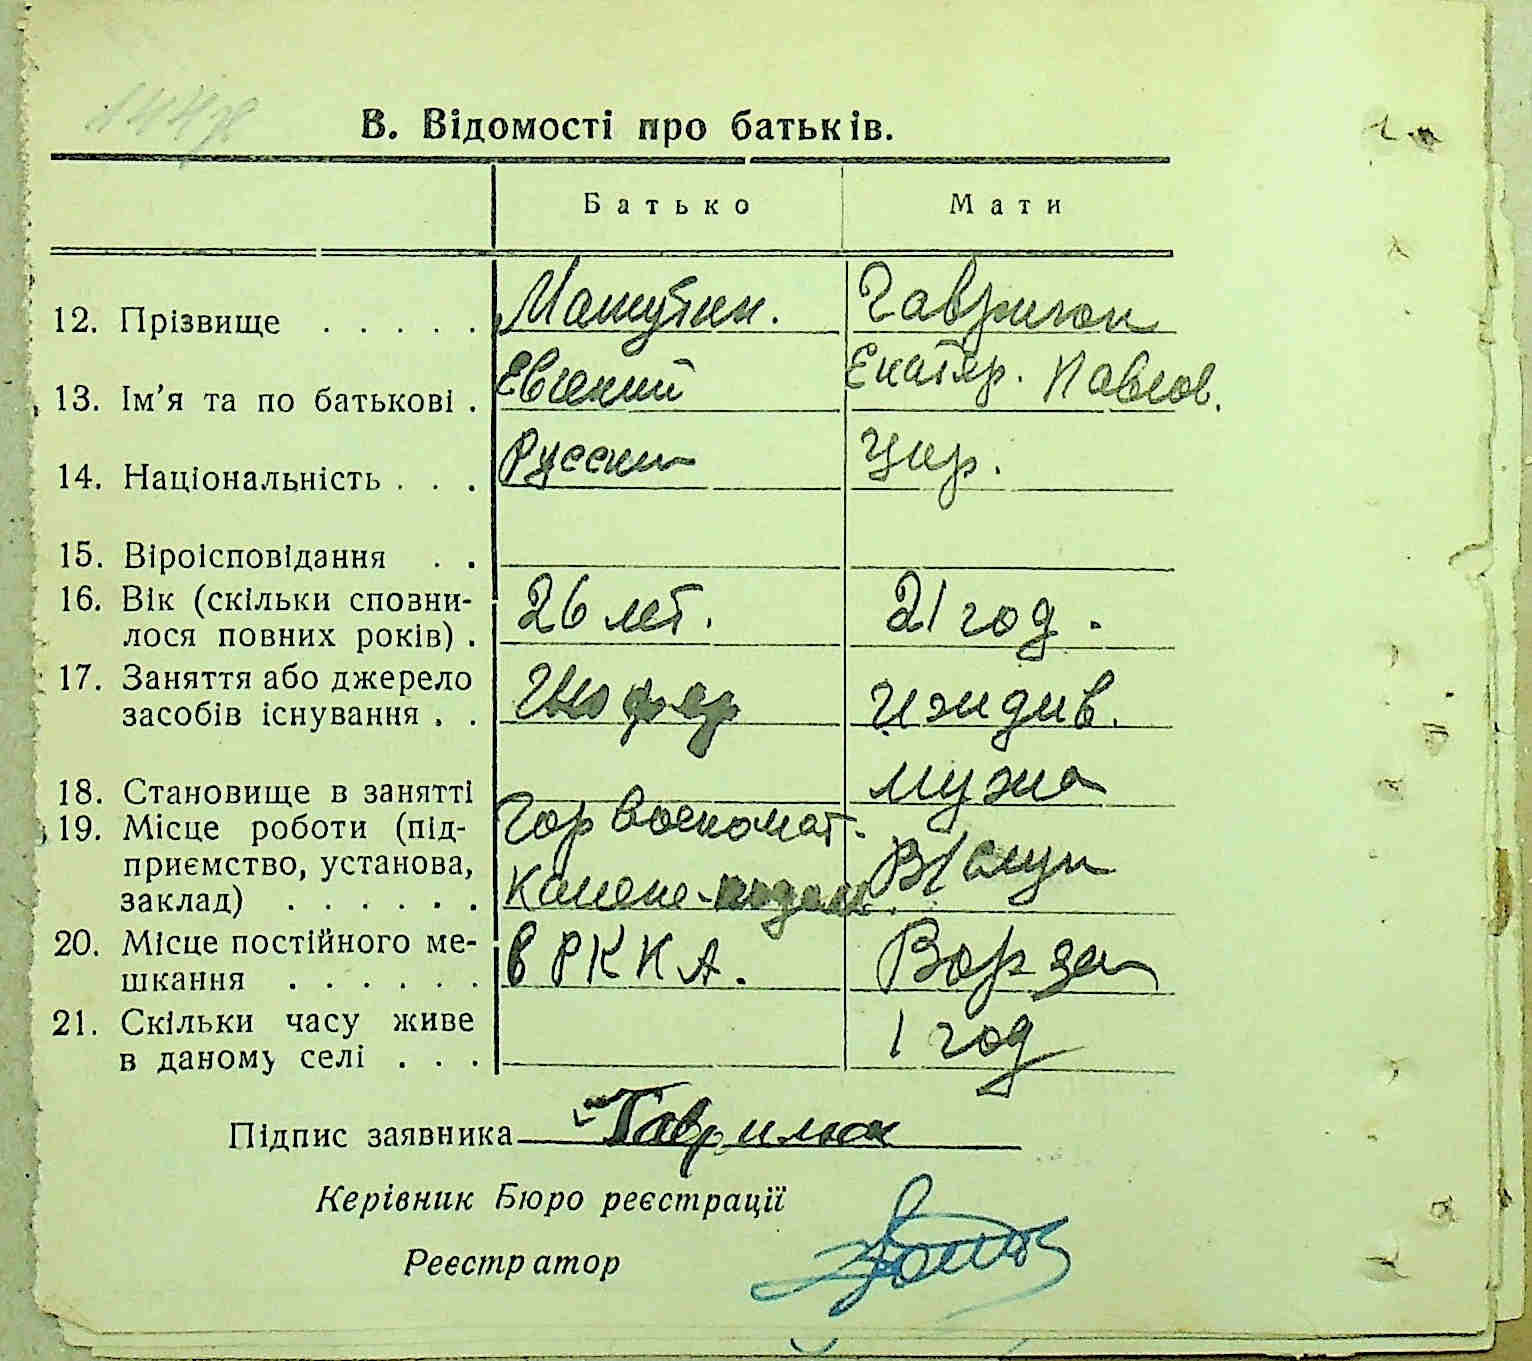 В. Відомості про батьків.
Батько Мати
12. Прізвище . . . . . Машутин. Гаврилюк
13. Ім'я та по батькові . Евгений Екатер. Павлов.
14. Національність . . . Русский Укр.
15. Віроісповідання . .
16. Вік (скільки сповни-
лося повних років) . 26 лет. 21 год.
17. Заняття або джерело
засобів існування . . Шофер Иждив.
18. Становище в занятті мужа
19. Місце роботи (під- Горвоенкомат.
приємство, установа,
заклад) . . . . . . Камене-подол.
20. Місце постійного ме-
шкання . . . . . . в РККА.
21. Скільки часу живе
в даному селі . . . 1 год
Підпис заявника Гаврилюк
Керівник Бюро реєстрації
Реєстратор